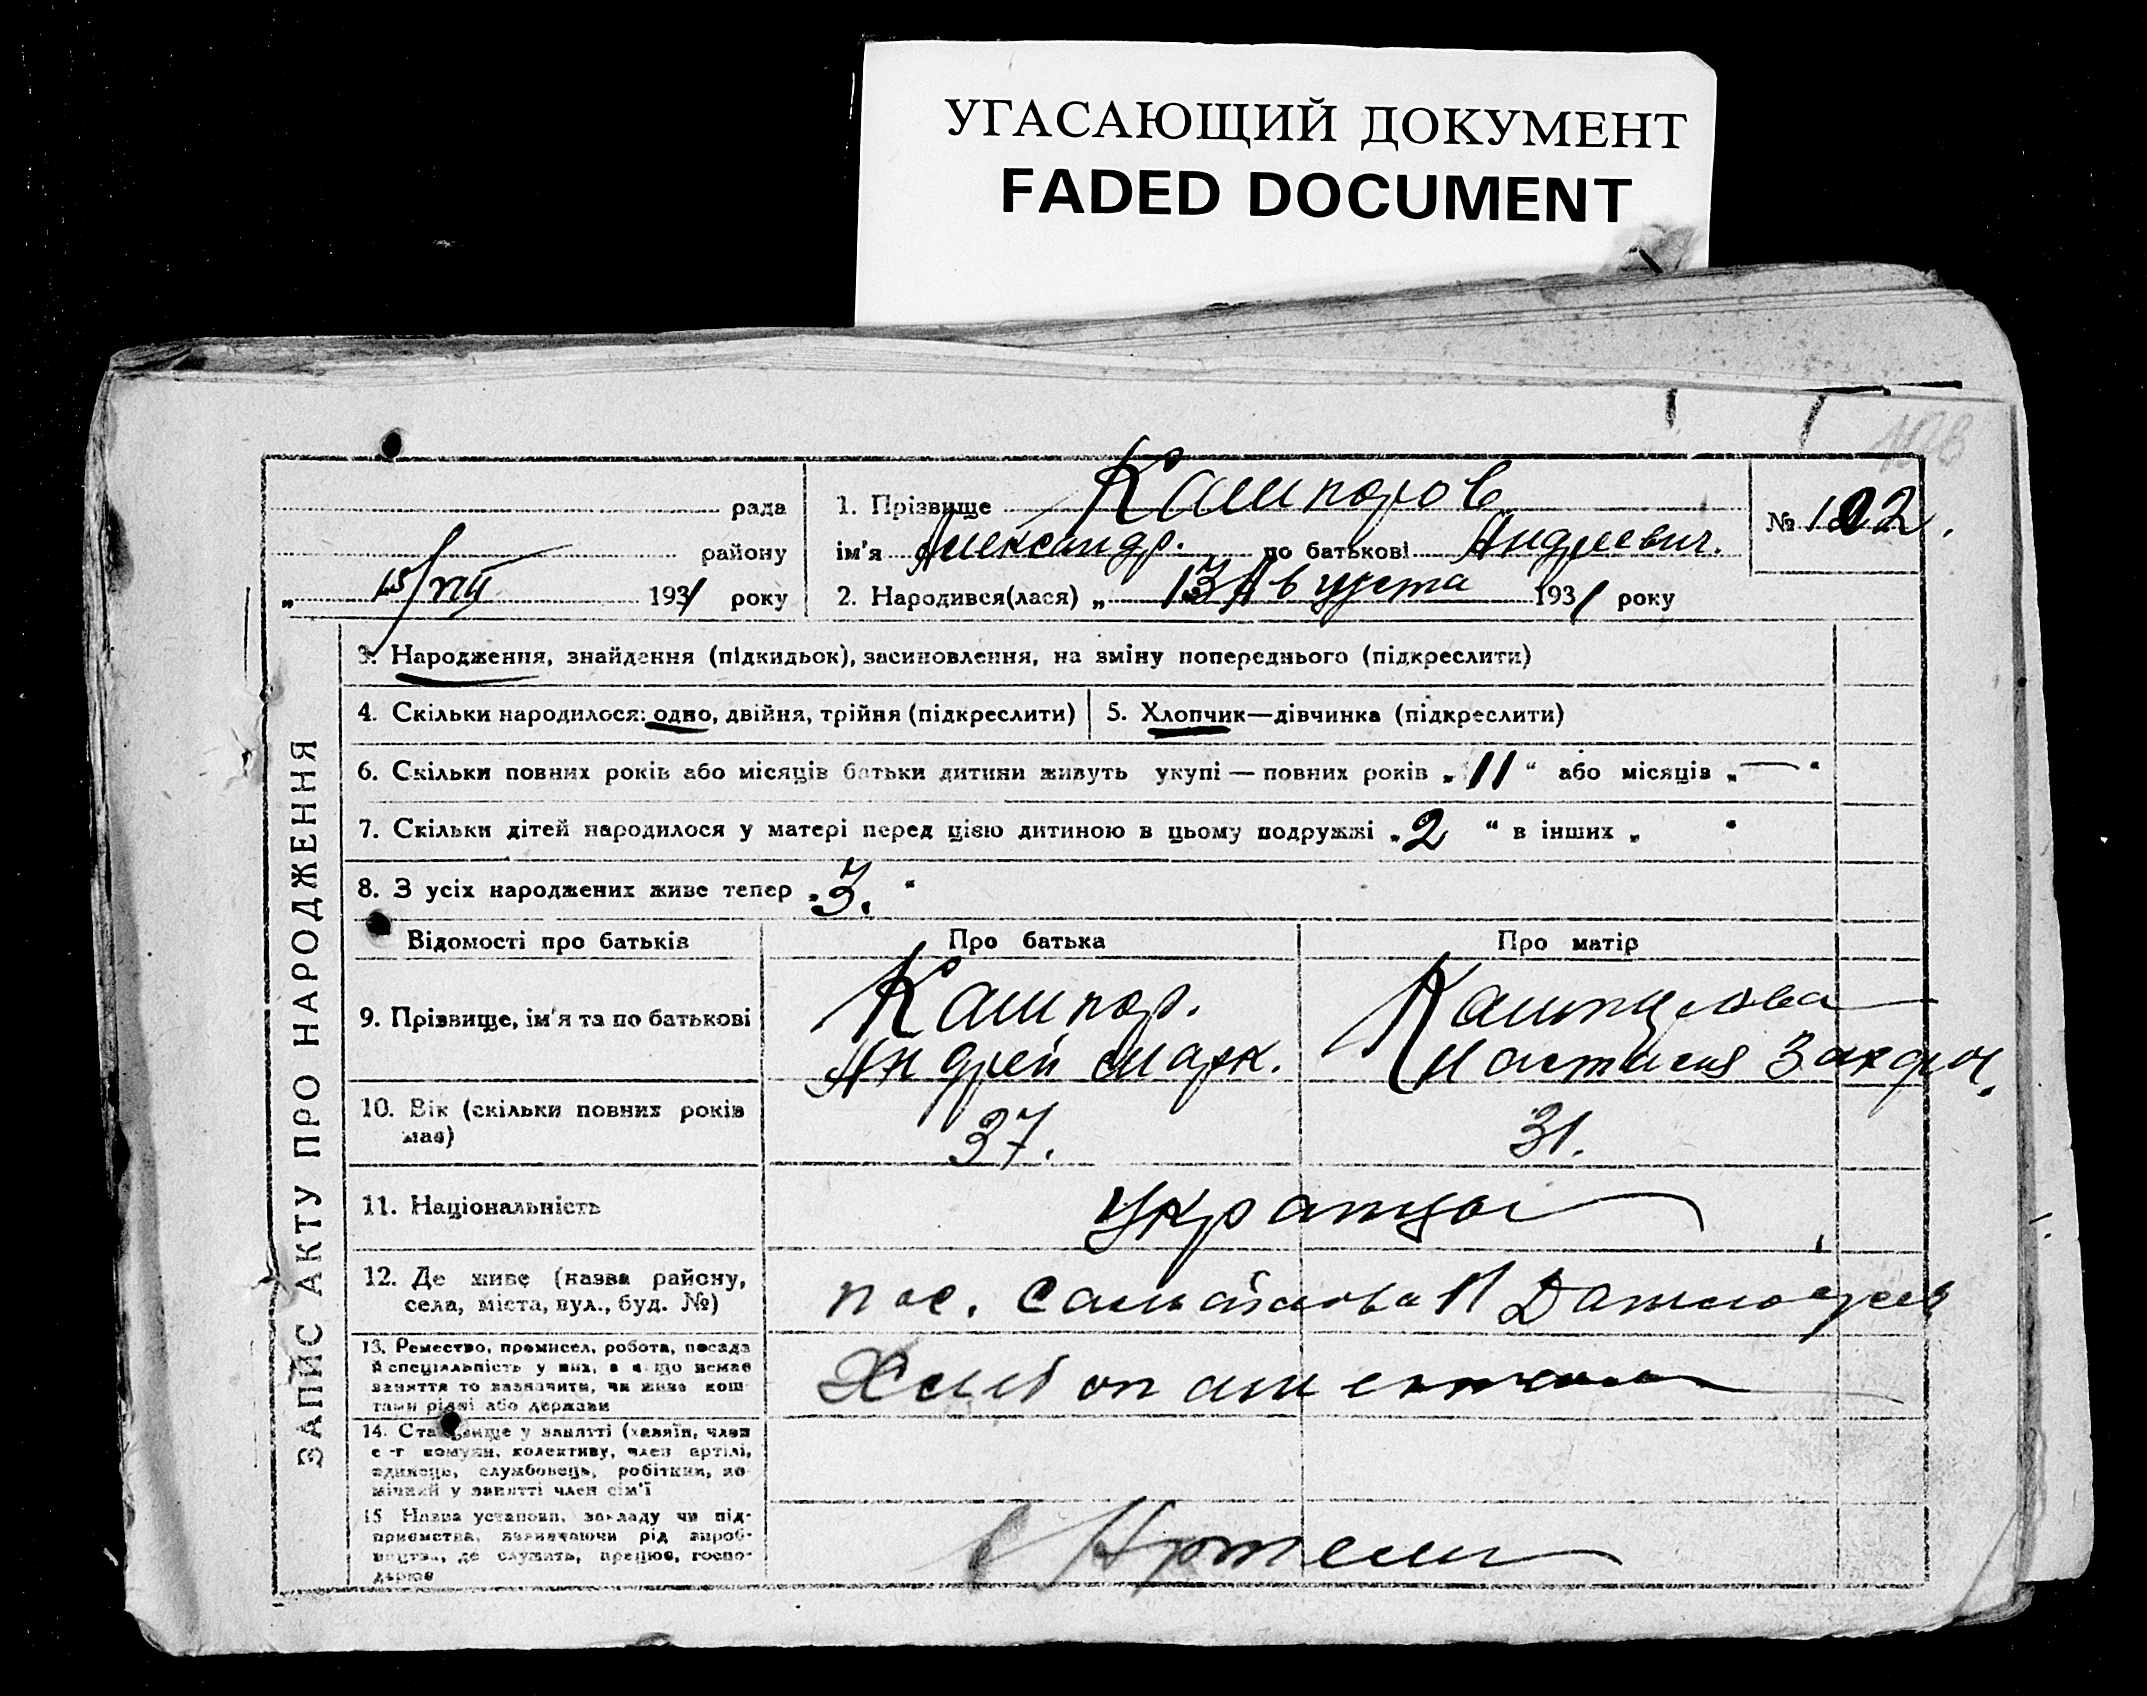 УГАСАЮЩИЙ ДОКУМЕНТ
FADED DOCUMENT
рада
району
„ 15/VIII 1931 року
1. Прізвище Кашпоров
ім'я Александр. по батькові Андреевич.
2. Народився(лася) „ 13 Августа 1931 року
№ 102.
ЗАПИС АКТУ ПРО НАРОДЖЕННЯ
3. Народження, знайдення (підкидьок), засиновлення, на зміну попереднього (підкреслити)
4. Скільки народилося: одно, двійня, трійня (підкреслити)
5. Хлопчик—дівчинка (підкреслити)
6. Скільки повних років або місяців батьки дитини живуть укупі — повних років „ 11 “ або місяців „ — “
7. Скільки дітей народилося у матері перед цією дитиною в цьому подружжі „ 2 “ в інших „ “
8. З усіх народжених живе тепер „ 3. “
Відомості про батьків
Про батька
Про матір
9. Прізвище, ім'я та по батькові
Кашпор.
Андрей Марк.
Настасия Захар.
10. Вік (скільки повних років має)
37.
31.
11. Національність
12. Де живе (назва району,
села, міста, вул., буд. №)
пос.
13. Ремество, промисел, робота, посада
й спеціяльність у них, а якщо немає
заняття то зазначити, чи живе кош-
тами рідні або держави
Хлебопашество
14. Становище у занятті (хазяїн, член
с-г комуни, колективу, член артілі,
одинець, службовець, робітник, по-
мічний у занятті член сім'ї
15 Назва установи, закладу чи під-
приємства, зазначаючи рід вироб-
ництва, де служить, працює, госпо-
дарює
в Артели